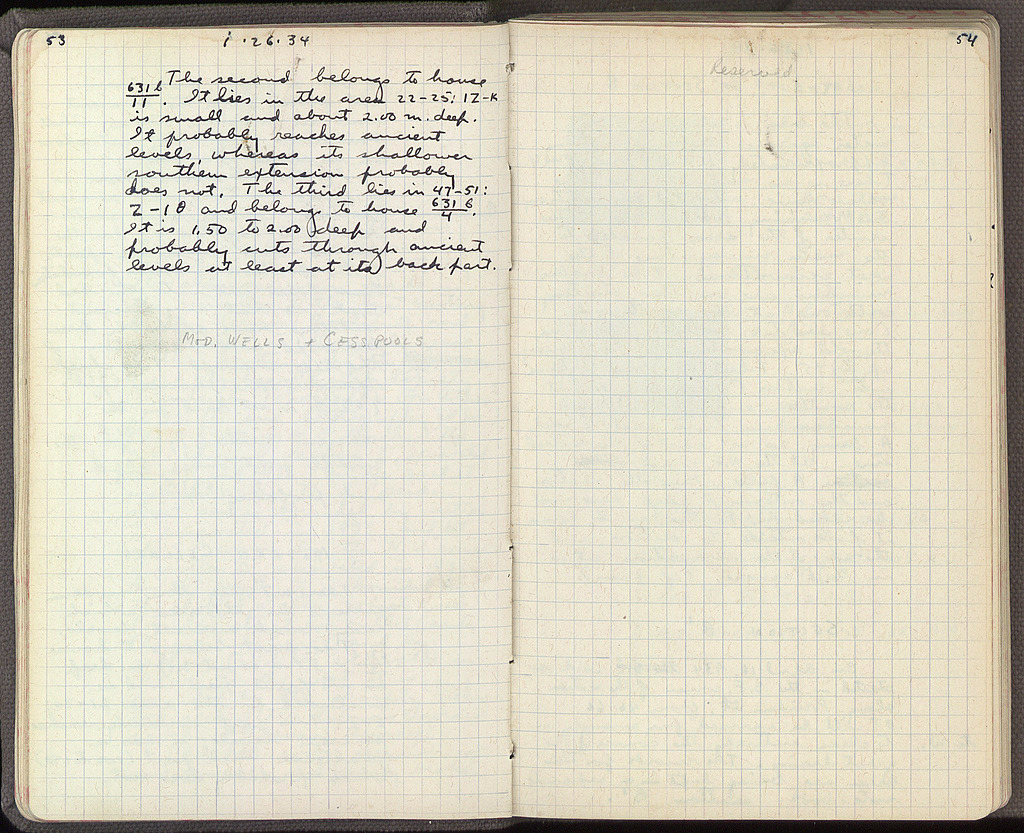 53
1 · 26 · 34
The second belongs to house
631 b/11. It lies in the area 22-25: IZ-K
is small and about 2.00 m. deep.
It probably reaches ancient
levels, whereas its shallower
southern extension probably
does not. The third lies in 47-51:
Z-IΘ and belongs to house 631 b/4.
It is 1.50 to 2.00 deep and
probably cuts through ancient
levels at least at its back part.
MOD. WELLS + CESSPOOLS
54
Reserved.